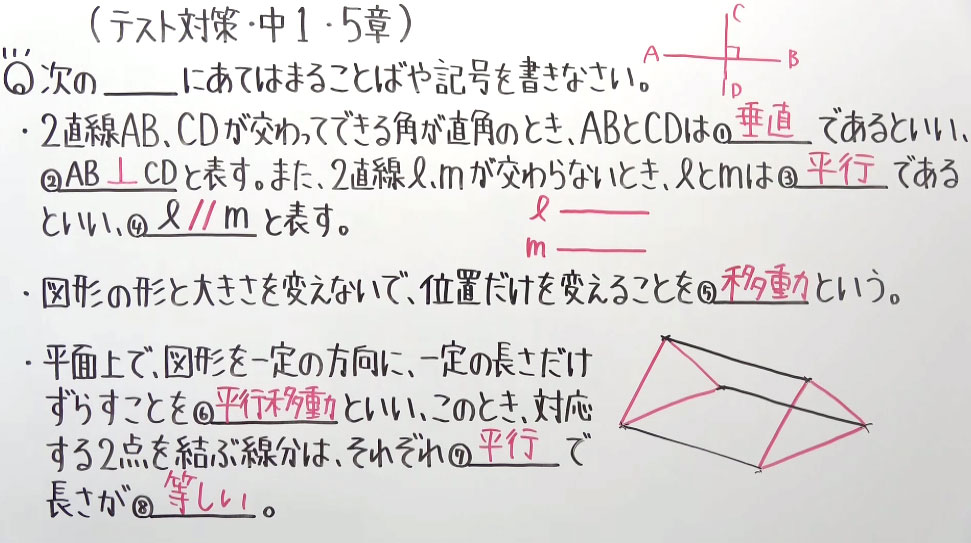 (テスト対策・中1・5章)
Q 次の____にあてはまることばや記号を書きなさい。
C
A B
D
・2直線AB、CDが交わってできる角が直角のとき、ABとCDは①垂直であるといい、
②AB⊥CDと表す。また、2直線ℓ、mが交わらないとき、ℓとmは③平行である
といい、④ℓ//mと表す。
ℓ
m
・図形の形と大きさを変えないで、位置だけを変えることを⑤移動という。
・平面上で、図形を一定の方向に、一定の長さだけ
ずらすことを⑥平行移動といい、このとき、対応
する2点を結ぶ線分は、それぞれ⑦平行で
長さが⑧等しい。